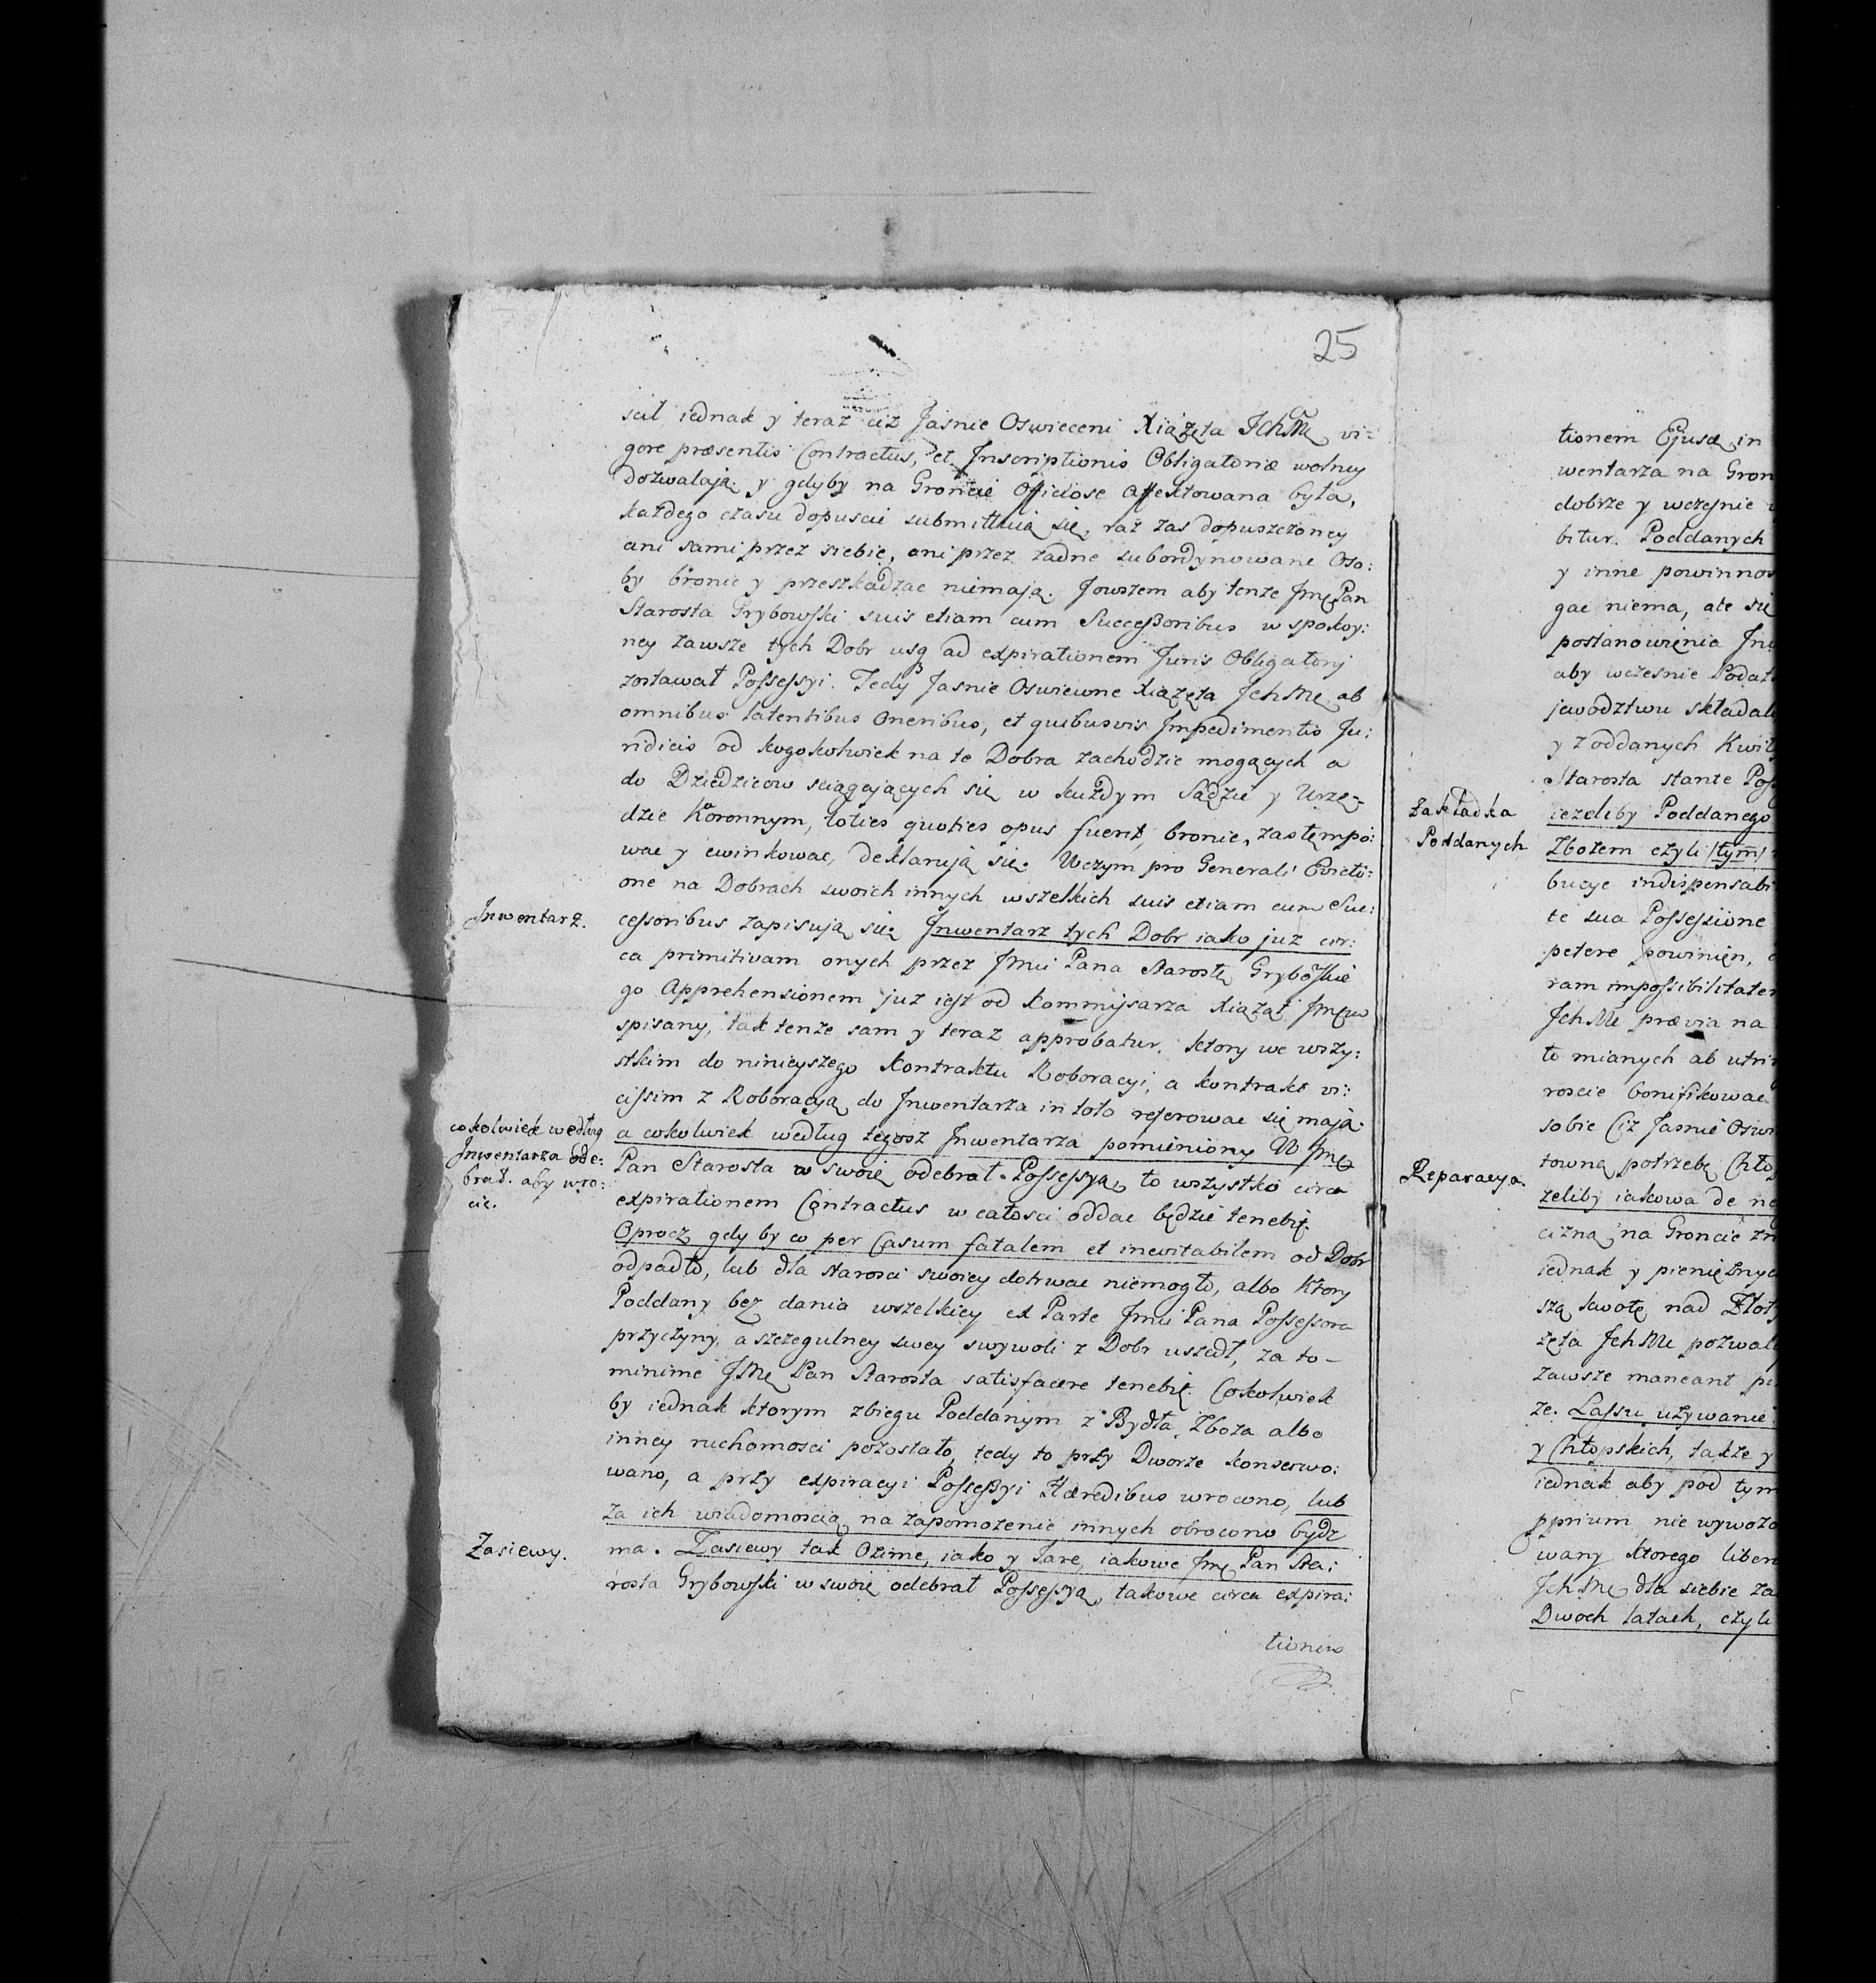 25
scił iednak y teraz ciż Jasnie Oswieceni Xiążęta JchMć, vi-
gore præsentis Contractus, et Inscriptionis Obligatoriæ wolney
dozwalają. y gdyby na Groncie officiose affektowana była,
każdego czasu dopuscić submittuią się, raz zas dopuszczoney
ani sami przez siebie, ani przez żadne subordynowane Oso:
by bronic y przeszkadzac niemają. Jowszem aby tenże Jmę Pan
Starosta Grybowski suis etiam cum Successoribus w spokoy:
ney zawsze tych Dobr usq ad expirationem Juris Obligatorij
zostawał Possessyi. Tedy Jasnie Oswiecone Xiążęta JchMć ab
omnibus latentibus Oneribus, et quibusvis Impedimentis Ju:
ridicis od kogokolwiek na te Dobra zachodzic mogących a
do Dziedzicow sciągających się w każdym Sądzie y Urzę-
dzie Koronnym, toties quoties opus fuerit, bronic, zastempo:
wac y ewinkowac, deklarują się. Wczym pro Generali Evicti:
one na Dobrach swoich innych wszelkich suis etiam cum Suc:
Inwentarz.
cessoribus zapisują się Inwentarz tych Dobr iako już cir:
ca primitivam onych przez Jmci Pana Starostę Grybowskie
go Apprehensionem już iest od Kommisarza Xiążąt Jmciow
spisany, tak tenże sam y teraz approbatur. ktory we wszy:
stkim do ninieyszego Kontraktu Roboracyi, a kontrakt vi:
cissim z Roboracyą do Inwentarza in toto referowac się mają.
cokolwiek według
Inwentarza ode:
brał. aby wro:
cić.
a cokolwiek według tegosz Inwentarza pomieniony W Jmę
Pan Starosta w swoię odebrał Possessyą, to wszystko circa
expirationem Contractus w całosci oddac będzie tenebit.
Oprocz gdy by co per Casum fatalem et inevitabilem od Dobr
odpadło, lub dla starosci swoiey dotrwac niemogło, albo ktory
Poddany bez dania wszelkiey ex Parte Jmci Pana Possessora
przyczyny, a szczegulney swey swywoli z Dobr uszedł, za to-
minime JMę Pan Starosta satisfacere tenebit. Cokolwiek
by iednak ktorym zbiegu Poddanym z Bydła, Zboża albo
inney ruchomosci pozostało, tedy to przy Dworze konserwo:
wano, a przy expiracyi Possessyi Hæredibus wrocono, lub
za ich wiadomoscią na zapomożenie innych obrocono bydz
Zasiewy.
ma. Zasiewy tak Ozime, iako y Jare, iakowe Jmę Pan Sta:
rosta Grybowski w swoię odebrał Possessyą, takowe circa expira:
tionem
tionem Ejusd in
wentarza na Gron
dobrze y wczesnie
bitur. Poddanych
y inne powinnos
gac niema, ale się
postanowienia Inw
aby wczesnie Podat
jewodztwu składal
y z oddanych Kwit
Starosta stante Poss
Zakładka
Poddanych
ieżeliby Poddanego
Zbożem czyli /tym/
bucye indispensabi
te sua Possessione
petere powinien,
ram impossibilitatem
JchMć prævia na
to mianych ab utri
roscie bonifikowac
sobie Ciż Jasnie Oswi
towną potrzebę Chło
Reparacya.
żeliby iakowa de no
cizną na Groncie zn
iednak y pieniężnyc
szą kwotę nad Złot
żęta JchMć pozwal
zawsze maneant
ze. Lassu używanie
y Chłopskich, także y
iednak aby pod tym
pprium nie wywozo
wany ktorego liber
JchMć dla siebie za
Dwoch latach, czyli